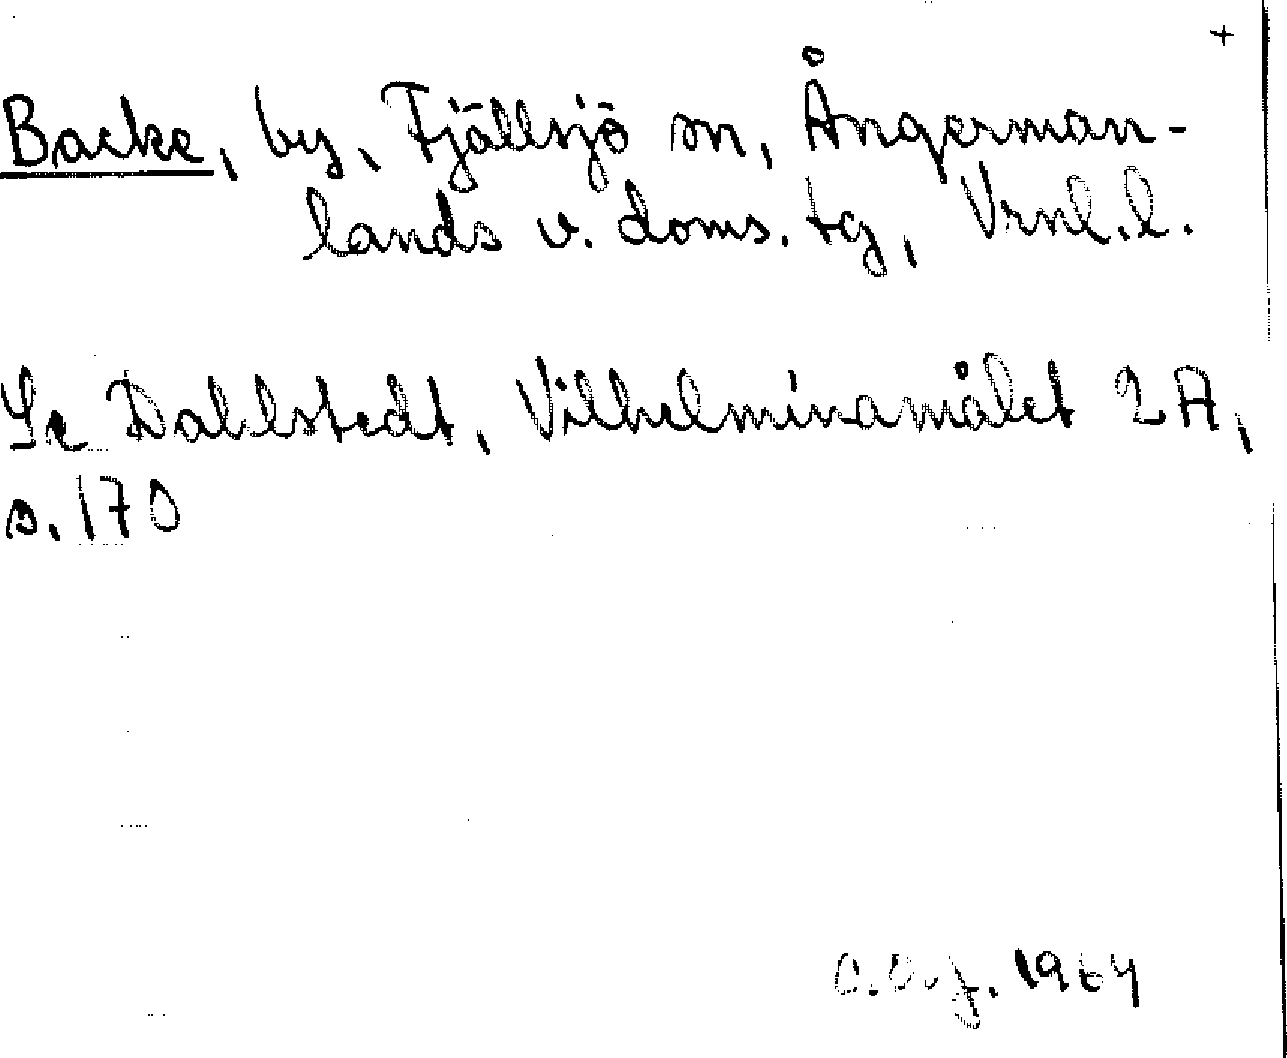 +
Backe, by, Fjällsjö sn, Ångerman-
lands v. doms. tg, Vrnl. l.
Se Dahlstedt, Vilhelminamålet 2A,
s. 170
1964